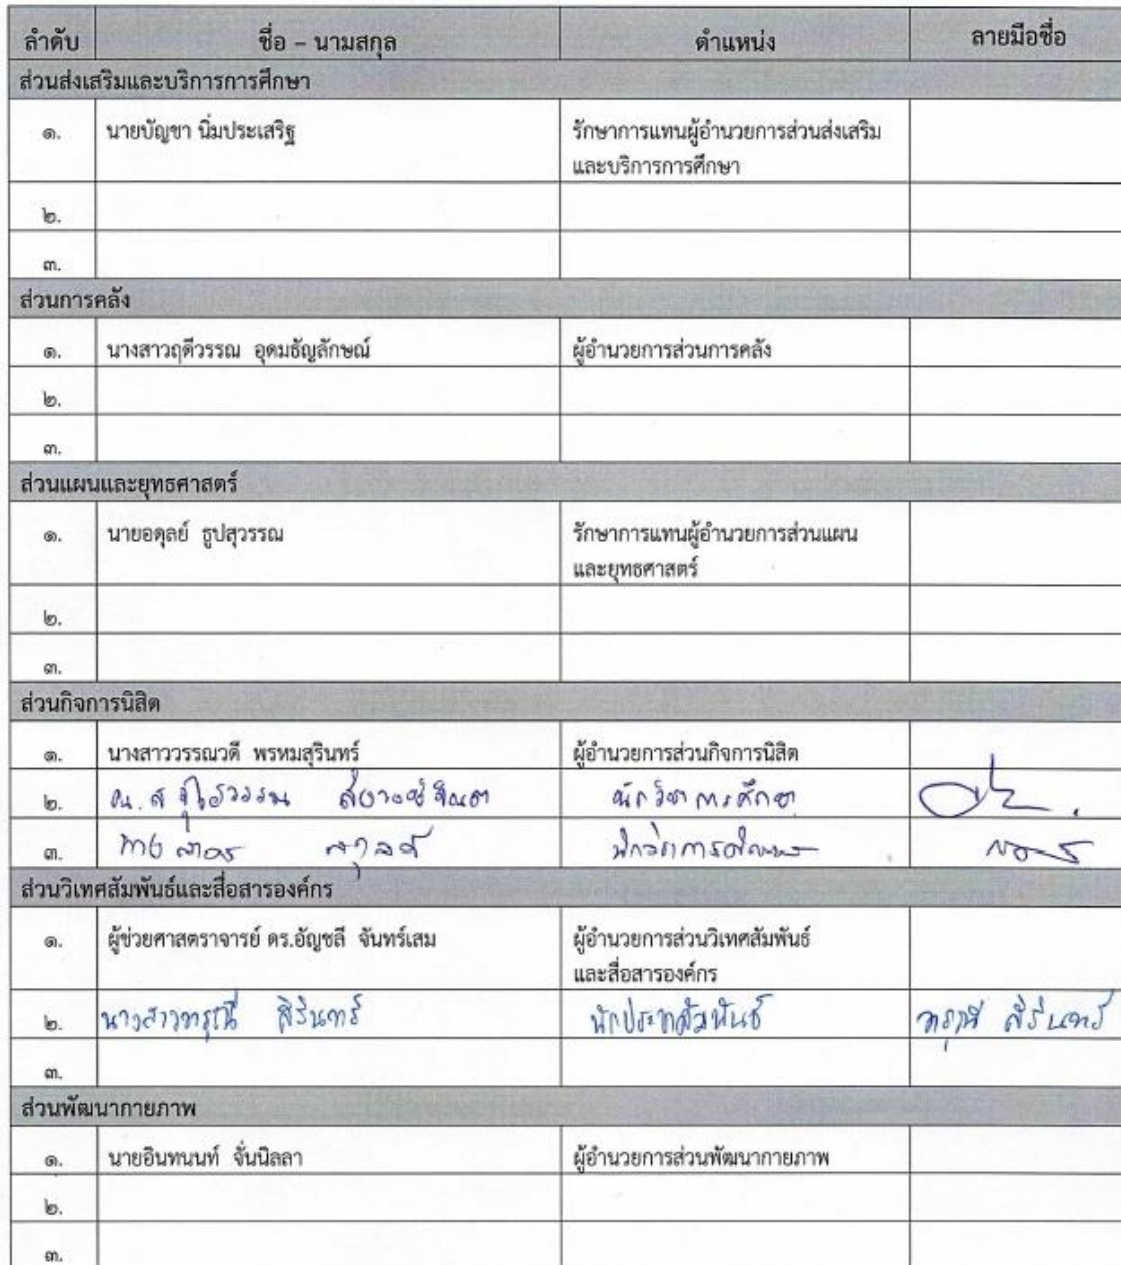 ลำดับ ชื่อ – นามสกุล ตำแหน่ง ลายมือชื่อ
ส่วนส่งเสริมและบริการการศึกษา
๑. นายบัญชา นิ่มประเสริฐ รักษาการแทนผู้อำนวยการส่วนส่งเสริม
และบริการการศึกษา
๒.
๓.
ส่วนการคลัง
๑. นางสาวฤดีวรรณ อุดมธัญลักษณ์ ผู้อำนวยการส่วนการคลัง
๒.
๓.
ส่วนแผนและยุทธศาสตร์
๑. นายอดุลย์ ธูปสุวรรณ รักษาการแทนผู้อำนวยการส่วนแผน
และยุทธศาสตร์
๒.
๓.
ส่วนกิจการนิสิต
๑. นางสาววรรณวดี พรหมสุรินทร์ ผู้อำนวยการส่วนกิจการนิสิต
๒. น.ส. นักวิชาการศึกษา
๓. นักวิชาการศึกษา
ส่วนวิเทศสัมพันธ์และสื่อสารองค์กร
๑. ผู้ช่วยศาสตราจารย์ ดร.อัญชลี จันทร์เสม ผู้อำนวยการส่วนวิเทศสัมพันธ์
และสื่อสารองค์กร
๒. นางสาวทารุณี สิรินทร์ นักประชาสัมพันธ์
๓.
ส่วนพัฒนากายภาพ
๑. นายอินทนนท์ จั่นนิลลา ผู้อำนวยการส่วนพัฒนากายภาพ
๒.
๓.